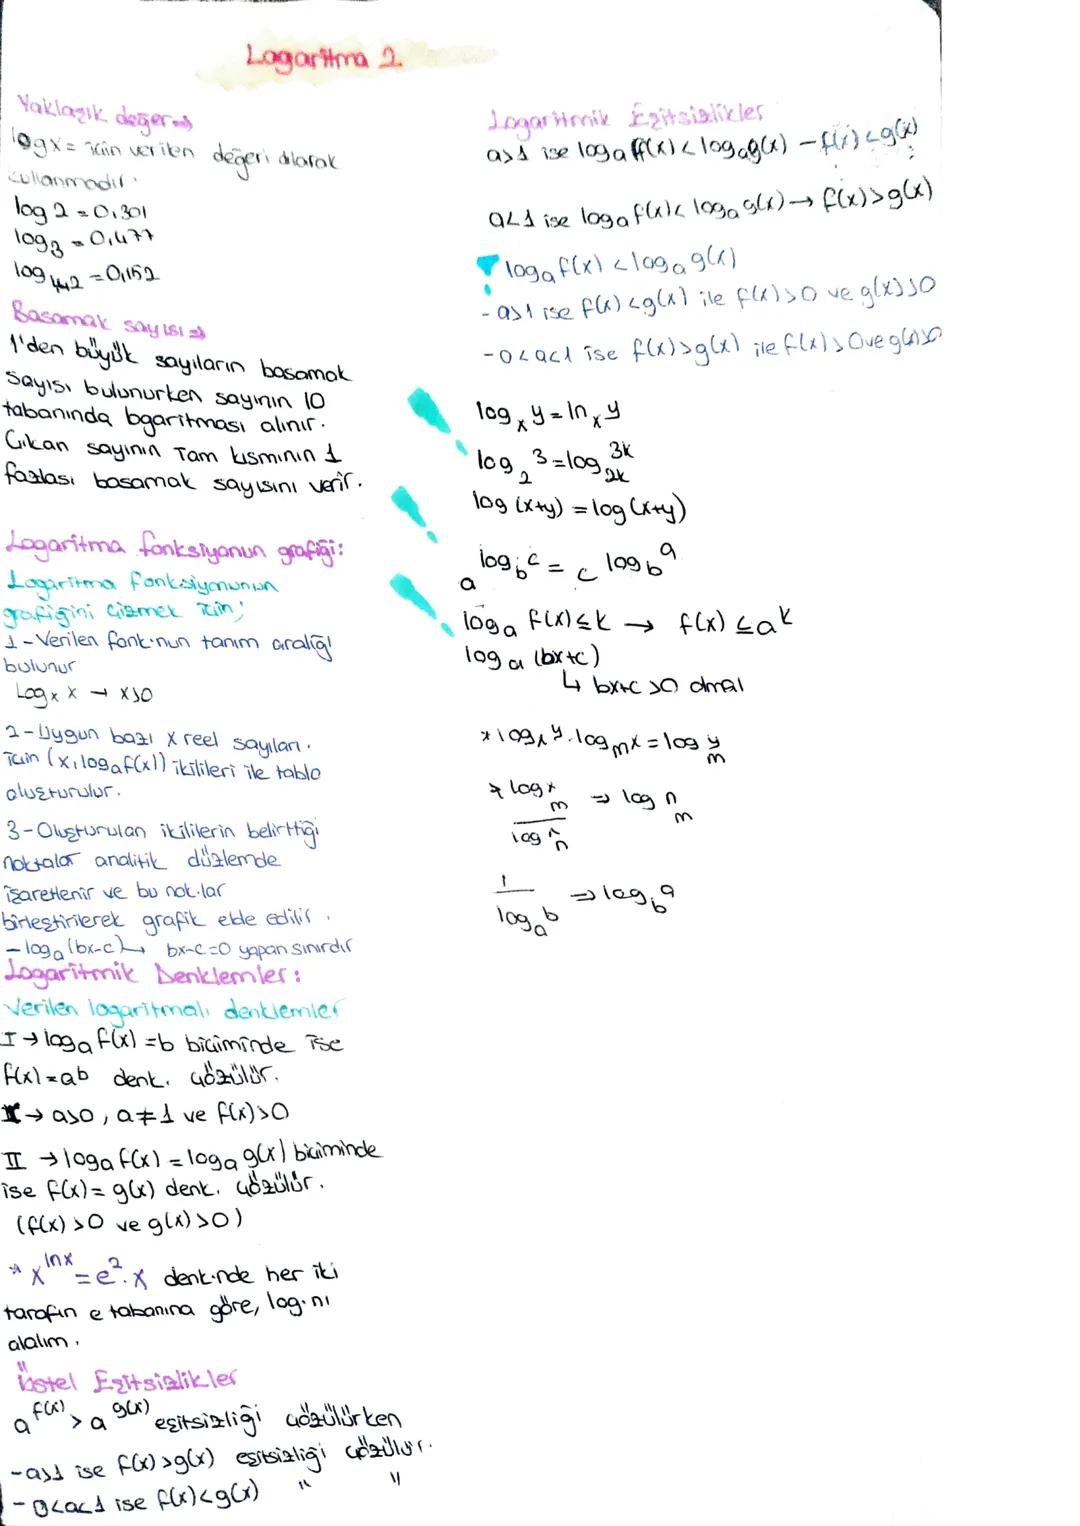 Logaritma 2
Yaklaşık değer ⇒
logx = için verilen değeri olarak
kullanmadır.
log 2 = 0,301
log₃ = 0,477
log₁,₄₂ = 0,152
Basamak sayısı ⇒
1'den büyük sayıların basamak
sayısı bulunurken sayının 10
tabanında logaritması alınır.
Çıkan sayının Tam kısmının 1
fazlası basamak sayısını verir.
Logaritma fonksiyonun grafiği:
Logaritma fonksiyonunun
grafiğini çizmek için;
1-Verilen fonk.nun tanım aralığı
bulunur
Logₓ x → x>0
2-Uygun bazı x reel sayıları.
için (x, logₐf(x)) ikilileri ile tablo
oluşturulur.
3-Oluşturulan ikililerin belirttiği
noktalar analitik düzlemde
işaretlenir ve bu nok.lar
birleştirilerek grafik elde edilir.
-logₐ(bx-c) ↳ bx-c=0 yapan sınırdır
Logaritmik Denklemler:
Verilen logaritmalı denklemler
I → logₐ f(x) = b biçiminde ise
f(x) = aᵇ denk. çözülür.
→ a>0, a≠1 ve f(x)>0
II → logₐ f(x) = logₐ g(x) biçiminde
ise f(x) = g(x) denk. çözülür.
(f(x) > 0 ve g(x) > 0)
* x^lnx = e².x denk.nde her iki
tarafın e tabanına göre, log.nı
alalım.
Üstel Eşitsizlikler
a^f(x) > a^g(x) eşitsizliği çözülürken
-a>1 ise f(x)>g(x) eşitsizliği çözülür.
-0<a<1 ise f(x)<g(x) " "
Logaritmik Eşitsizlikler
a>1 ise logₐ f(x) < logₐ g(x) → f(x) < g(x)
a<1 ise logₐ f(x) < logₐ g(x) → f(x) > g(x)
! logₐ f(x) < logₐ g(x)
-a>1 ise f(x) < g(x) ile f(x)>0 ve g(x)>0
-0<a<1 ise f(x)>g(x) ile f(x)>0 ve g(x)>0
! logₓ y = lnₓ y
log₂ 3 = log₂ₖ 3k
! log (x+y) = log (x+y)
a^(log_b c) = c^(log_b a)
! logₐ f(x) ≤ k → f(x) ≤ aᵏ
logₐ (bx+c)
↳ bx+c > 0 olmalı
* logₓ y . logₘ x = logₘ y
* logₘ x / logₙ x ⇒ logₘ n
1 / logₐ b ⇒ log_b a